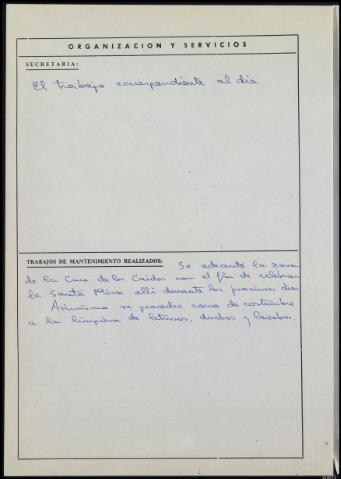 ORGANIZACION Y SERVICIOS
SECRETARIA:
El trabajo correspondiente al dia
TRABAJOS DE MANTENIMIENTO REALIZADOS: Se adecentó la zona
de la Cruz de los Caidos con el fin de celebrar
la Santa Misa alli durante los proximos dias
Asimismo se procedio como de costumbre
a la limpieza de letrinas, duchas y lavabos.